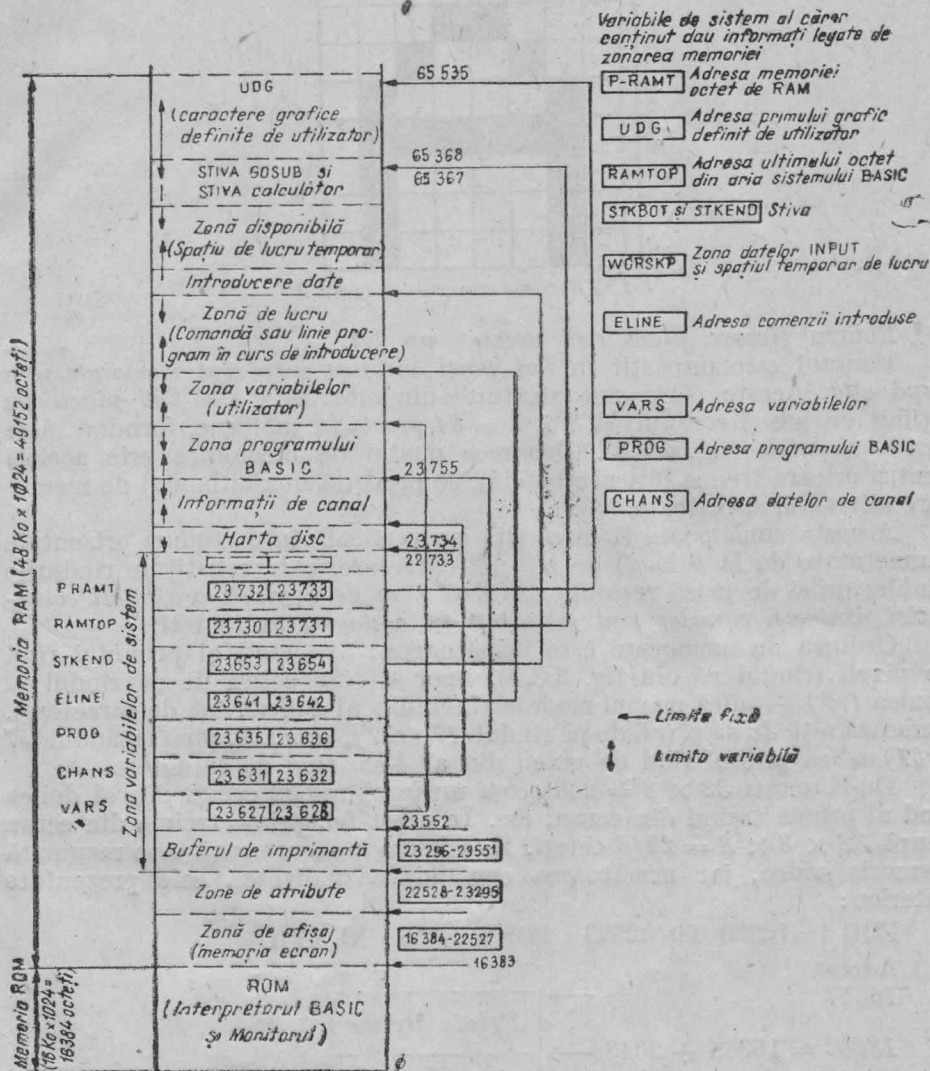 Variabile de sistem al căror
conținut dau informați legate de
zonarea memoriei
P-RAMT Adresa memoriei
octet de RAM
UDG Adresa primului grafic
definit de utilizator
RAMTOP Adresa ultimului octet
din aria sistemului BASIC
STKBOT și STKEND Stiva
WORSKP Zona datelor INPUT
și spațiul temporar de lucru
ELINE Adresa comenzii introduse
VARS Adresa variabilelor
PROG Adresa programului BASIC
CHANS Adresa datelor de canal
Limita fixă
Limita variabilă
Memoria RAM (48 Ko x 1024 = 49152 octeți)
Memoria ROM
(16 Ko x 1024 =
16384 octeți)
65 535
UDG
(caractere grafice
definite de utilizator)
65 368
STIVA GOSUB și
65 367
STIVA calculator
Zonă disponibilă
(Spațiu de lucru temporar)
Introducere date
Zonă de lucru
(Comandă sau linie pro-
gram în curs de introducere)
Zona variabilelor
(utilizator)
Zona programului
BASIC
23 755
Informații de canal
Harta disc
23,734
22 733
Zona variabilelor de sistem
PRAMT 23 732 23 733
RAMTOP 23 730 23 731
STKEND 23653 23 654
ELINE 23 641 23 642
PROG 23 635 23 636
CHANS 23 631 23 632
VARS 23 627 23 628
23 552
Buferul de imprimantă 23 296-23551
Zone de atribute 22528-23295
Zonă de afișaj
(memoria ecran)
16 384-22527
16383
ROM
(Interpretorul BASIC
și Monitorul)
φ